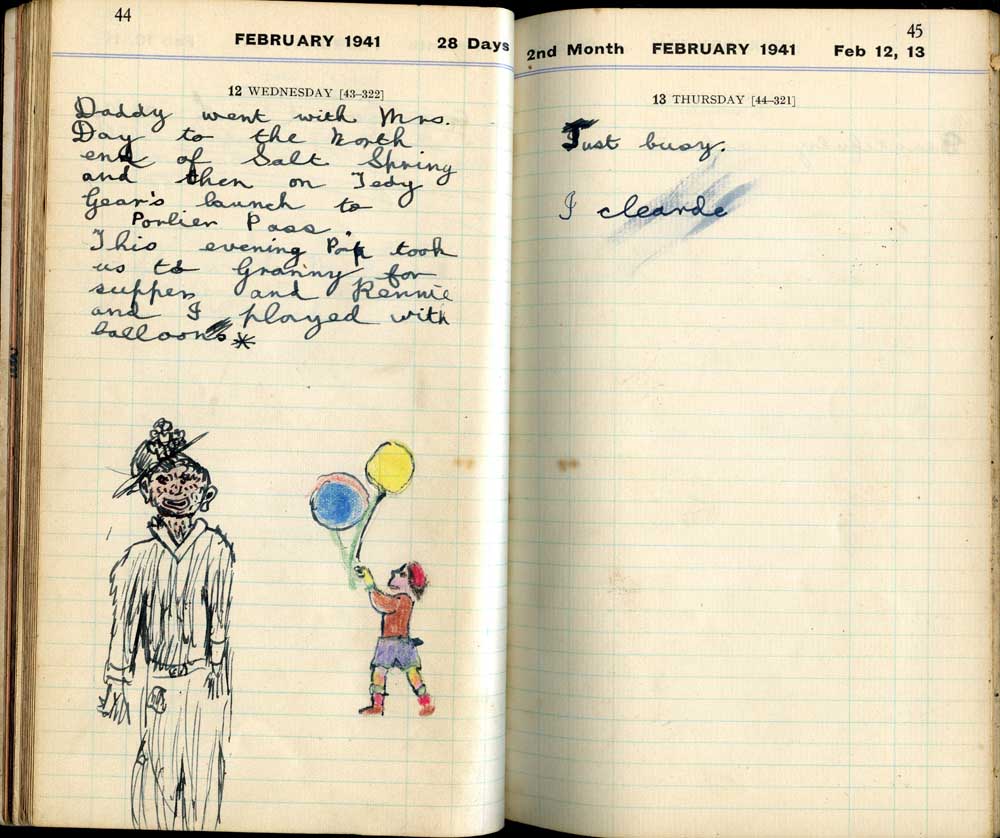 44
FEBRUARY 1941 28 Days
12 WEDNESDAY [43–322]
Daddy went with Mrs.
Day to the North
end of Salt Spring
and then on Tedy
Gear's launch to
Porlier Pass.
This evening Pop took
us to Granny for
supper and Rennie
and I played with
balloons*
45
2nd Month FEBRUARY 1941 Feb 12, 13
13 THURSDAY [44–321]
Just busy.
I clearde